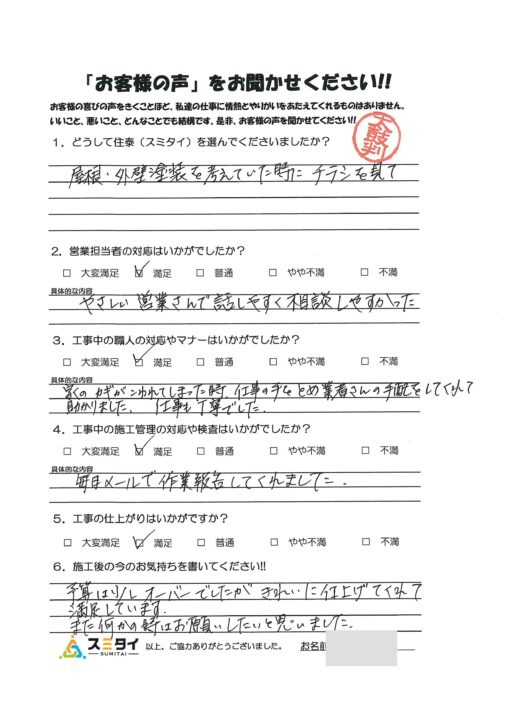 「お客様の声」をお聞かせください!!
お客様の喜びの声をきくことほど、私達の仕事に情熱とやりがいをあたえてくれるものはありません。
いいこと、悪いこと、どんなことでも結構です。是非、お客様の声を聞かせてください!!
太鼓判
1．どうして住泰（スミタイ）を選んでくださいましたか？
屋根・外壁塗装を考えていた時に チラシを見て
2．営業担当者の対応はいかがでしたか？
□ 大変満足 ☑ 満足 □ 普通 □ やや不満 □ 不満
具体的な内容
やさしい営業さんで話しやすく相談しやすかった
3．工事中の職人の対応やマナーはいかがでしたか？
□ 大変満足 ☑ 満足 □ 普通 □ やや不満 □ 不満
具体的な内容
家のカギがこわれてしまった時、仕事の手をとめ業者さんの手配をしてくれて
助かりました。 仕事も丁寧でした。
4．工事中の施工管理の対応や検査はいかがでしたか？
□ 大変満足 ☑ 満足 □ 普通 □ やや不満 □ 不満
具体的な内容
毎日メールで作業報告してくれました。
5．工事の仕上がりはいかがですか？
□ 大変満足 ☑ 満足 □ 普通 □ やや不満 □ 不満
6．施工後の今のお気持ちを書いてください!!
予算は少しオーバーでしたが きれいに仕上げてくれて
満足しています。
また何かの時はお願いしたいと思いました。
スミタイ SUMITAI 以上、ご協力ありがとうございました。 お名前